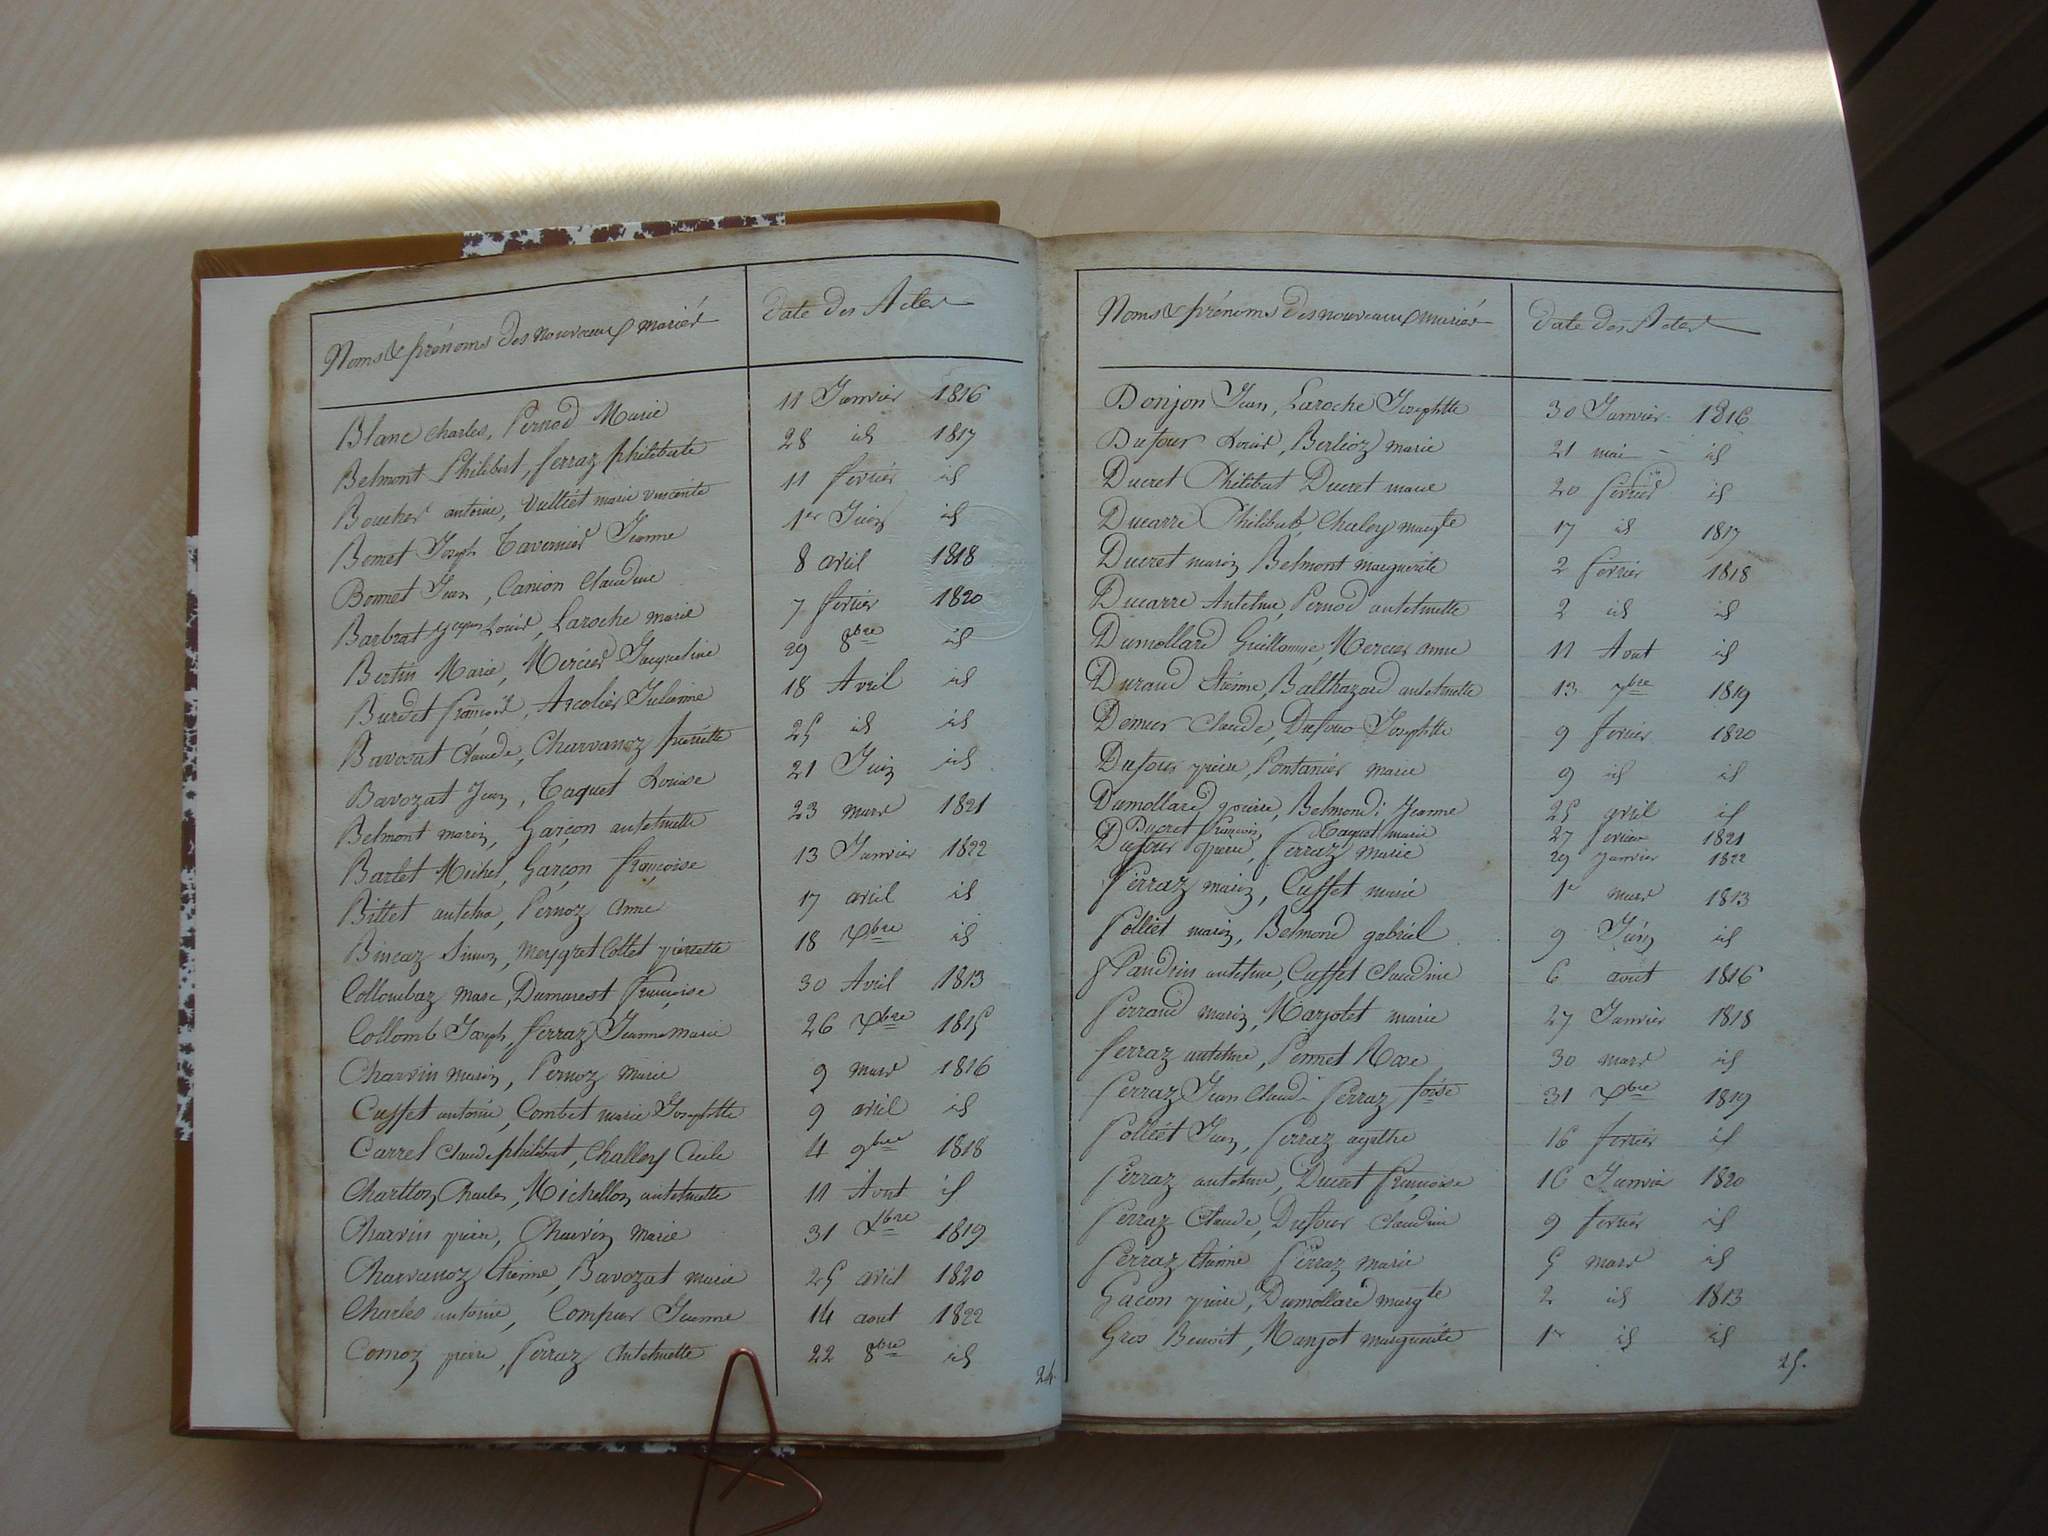 Noms & prénoms des nouveaux mariés Date des Actes
Blanc Charles, Pernod Marie 11 Janvier 1816
Belmont Philibert, ferraz philiberte 28 id 1817
Boucher antoine, Vulliet marie vincente 11 fevrier id
Bonnet Joseph Tavernier Jeanne 1er Juin id
Bonnet Jean, Canion Claudine 8 avril 1818
Barbrat Jacques Louis, Laroche marie 7 fevrier 1820
Bertin Marie, Mercier Jacqueline 29 8bre id
Burdet françois, Arcolier Julienne 18 Avril id
Bavozat Claude, Charvanoz pierrette 25 id id
Bavozat Jean, Taquet Louise 21 Juin id
Belmont marin, Garçon antelmette 23 mars 1821
Barlet Michel, Garçon françoise 13 Janvier 1822
Billet antelme, Pernoz Anne 17 avril id
Bincaz Simon, Meygret Collet pierrette 18 xbre id
Collombaz marc, Dumarest françoise 30 Avril 1813
Collomb Joseph, ferraz Jeanne marie 26 xbre 1815
Charvin marin, Pernoz marie 9 mars 1816
Cuffet antoine, Combet marie Josephtte 9 avril id
Carrel Claude philibert, Challey Cécile 4 9bre 1818
Charllon Charles, Michellon antelmette 11 Aout id
Charvin pierre, Charvin Marie 31 xbre 1819
Charvanoz Etienne, Bavozat marie 25 avril 1820
Charles antoine, Jeanne 14 aout 1822
Comoz pierre, ferraz Antelmette 22 8bre id
24.
Noms & prénoms des nouveaux mariés Date des Actes
Donjon Jean, Laroche Josephtte 30 Janvier 1816
Dufour Louis, Berlioz marie 21 mai - id
Ducret Philibert Ducret marie 20 fevrier id
Ducarre Philibert, Chaley margte 17 id 1817
Ducret marin, Belmont marguerite 2 fevrier 1818
Ducarre Antelme, Pernod antelmette 2 id id
Dumollard Guillaume, Mercier Anne 11 Aout id
Durand Etienne, Balthazard antelmette 13 7bre 1819
Demeur Claude, Dufour Josephtte 9 fevrier 1820
Dufour pierre, Pontanier marie 9 id id
Dumollard pierre, Belmond Jeanne 25 avril id
Ducret françois, Taquet marie 27 fevrier 1821
Dufour pierre, ferraz marie 29 Janvier 1822
ferraz marin, Cuffet marie 1er mars 1813
folliet marin, Belmond gabriel 9 Juin id
flandrin antelme, Cuffet Claudine 6 aout 1816
ferrand marin, Marjolet marie 27 Janvier 1818
ferraz antelme, Pennet Rose 30 mars id
ferraz Jean Claude ferraz foise 31 xbre 1819
folliet Jean, ferraz agathe 16 fevrier id
ferraz antelme, Ducret françoise 16 Janvier 1820
ferraz Claude, Dufour Claudine 9 fevrier id
ferraz Etienne ferraz marie 5 mars id
Gacon pierre, Dumollard margte 2 id 1813
Gros Benoit, Manjot marguerite 1er id id
25.